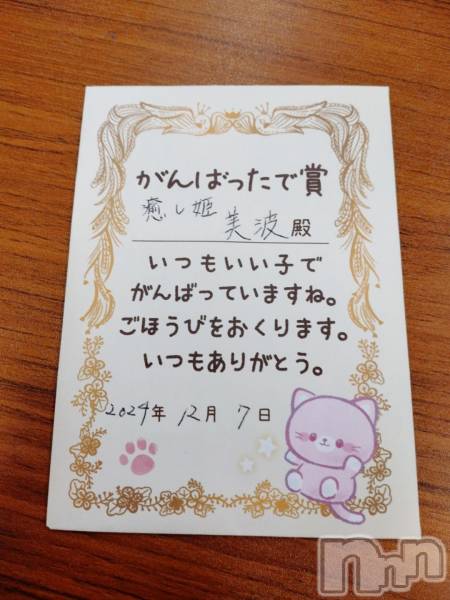 がんばったで賞
癒し姫 美波 殿
いつもいい子で
がんばっていますね。
ごほうびをおくります。
いつもありがとう。
2024年 12月 7日
nnn